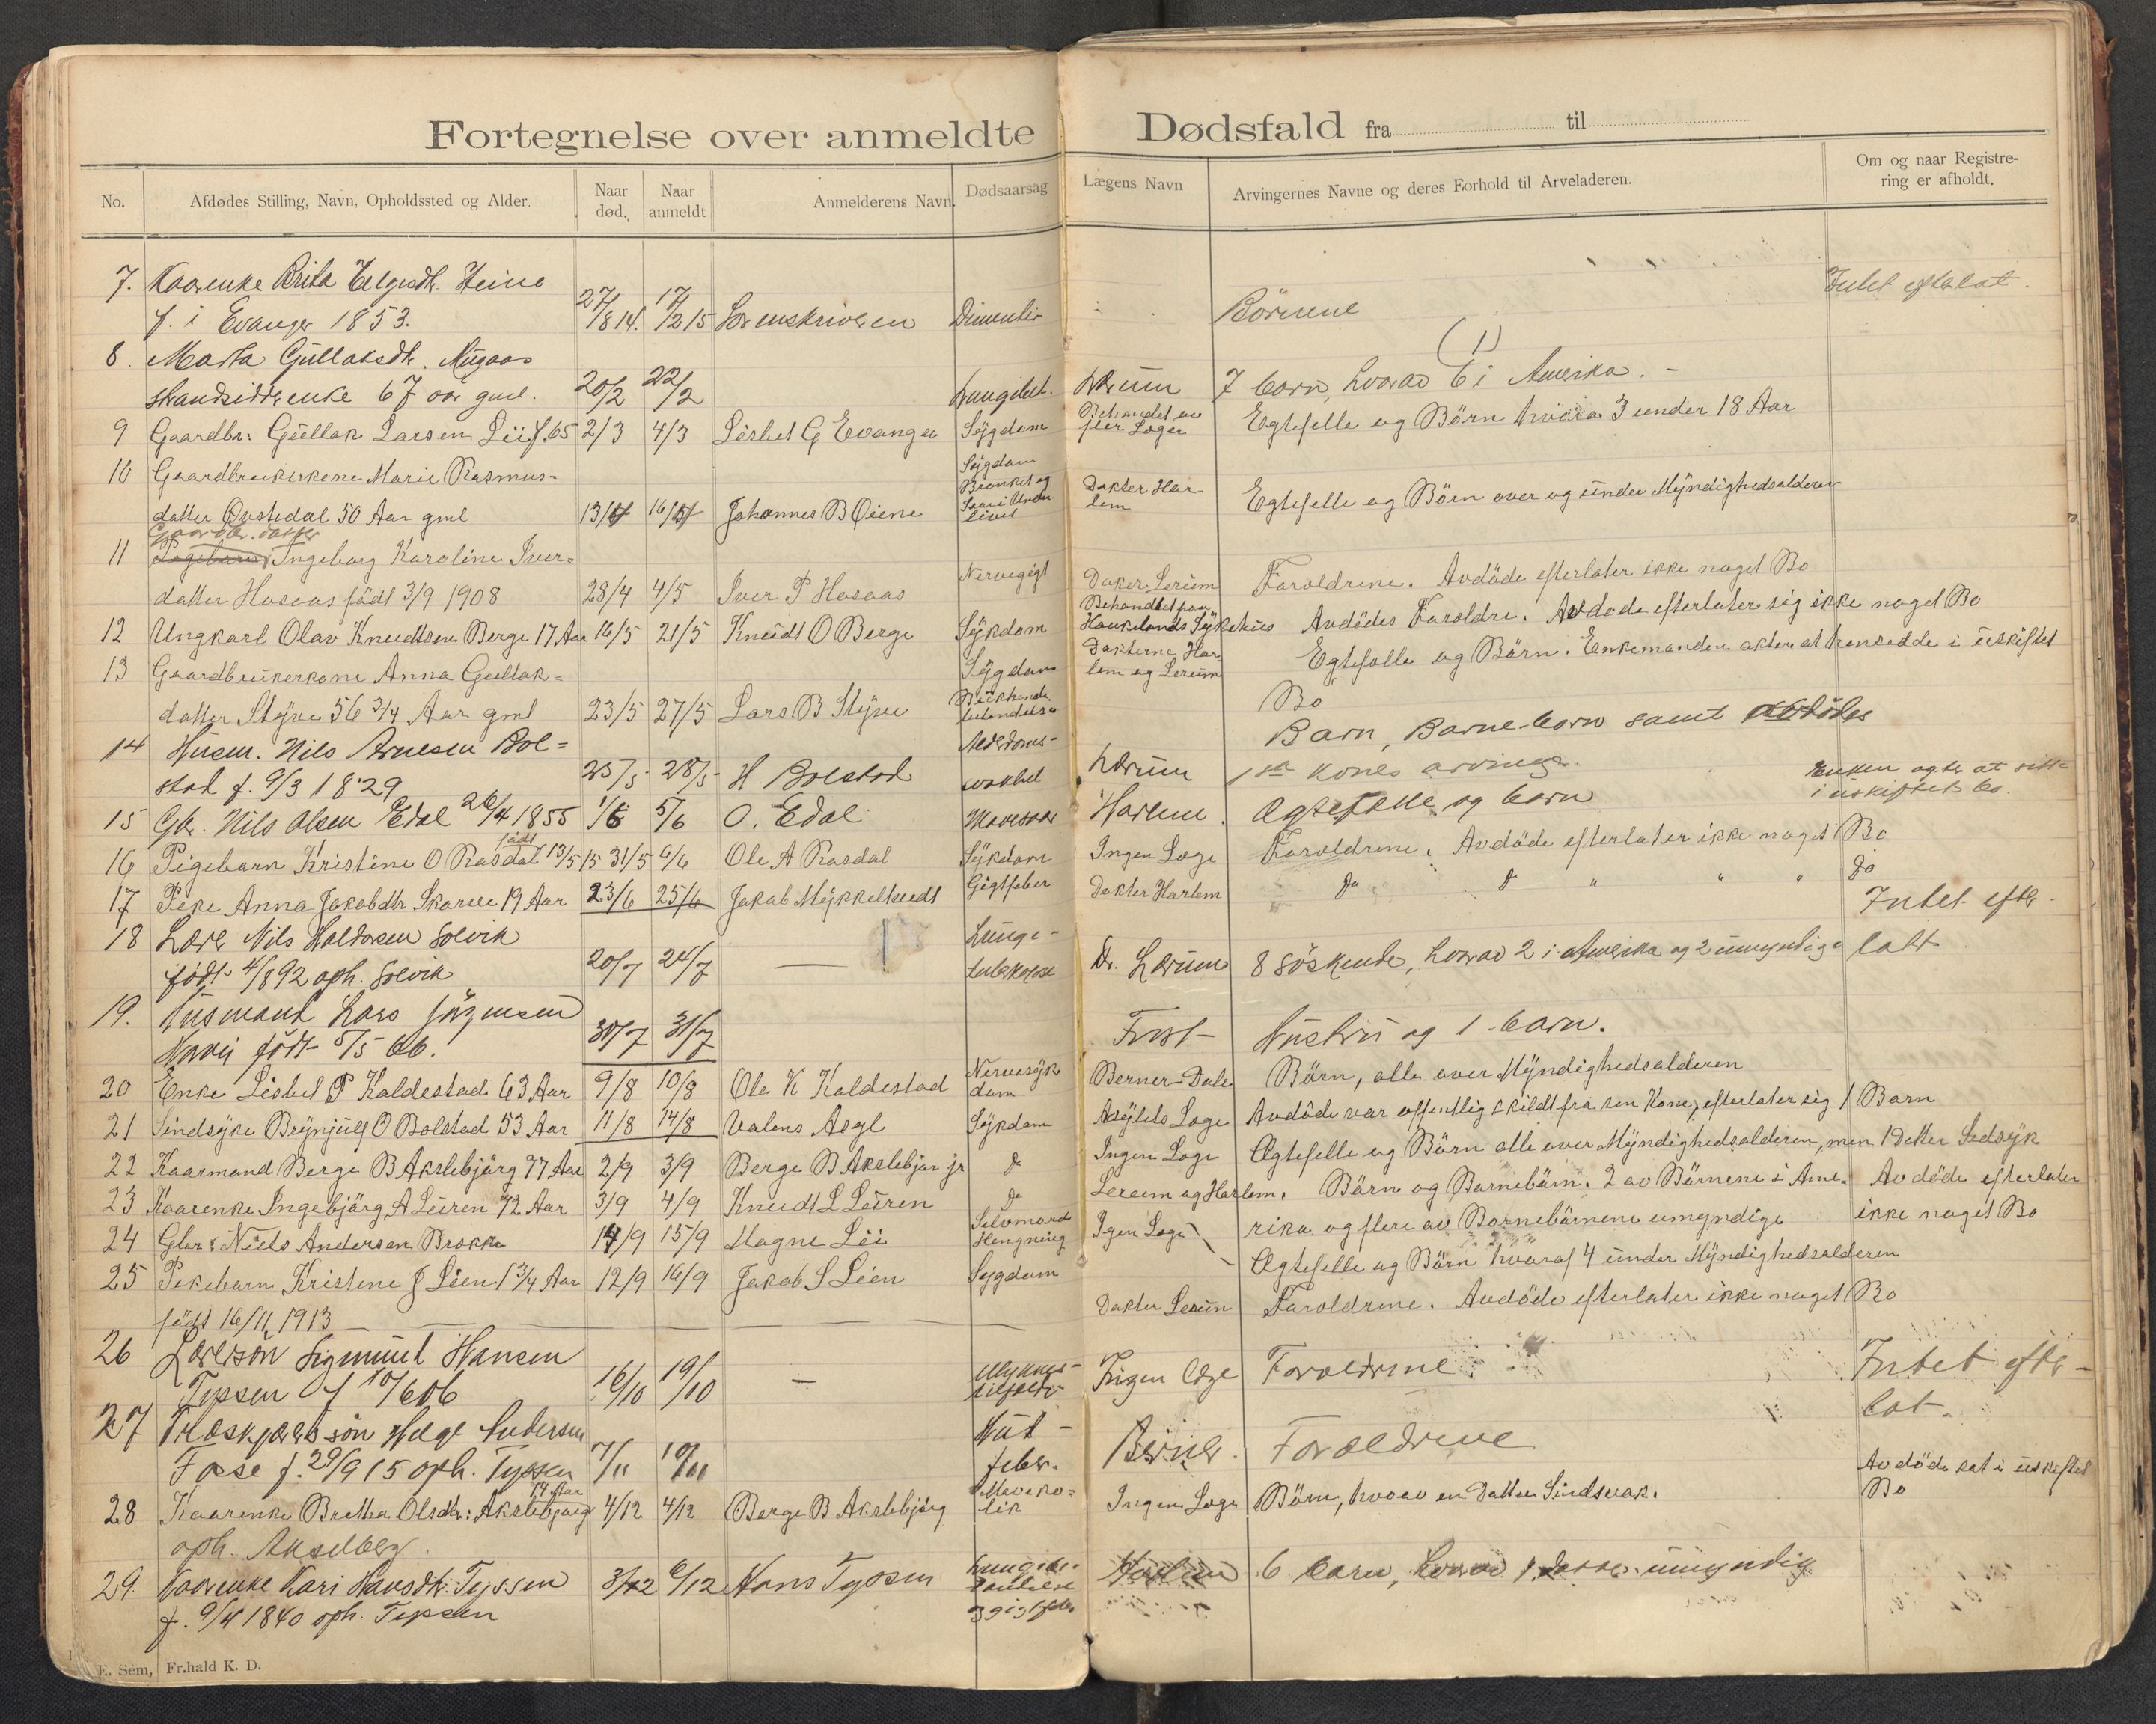 Fortegnelse over anmeldte Dødsfald fra til
No. Afdødes Stilling, Navn, Opholdssted og Alder. Naar død. Naar anmeldt Anmelderens Navn. Dødsaarsag Lægens Navn Arvingernes Navne og deres Forhold til Arveladeren. Om og naar Registrering er afholdt.
7. Kaarenke Brita
f. i Evanger 1853. 15 Sorenskriveren Börnene Intet efterlat.
(1)
8. Marta Gullaksdtr.
67 aar gml. 20/2 22/2 Lærum 7 barn, hvorav 6 i Amerika. -
9 Gaardbr: Gullak Larsen Lii f. 65 2/3 4/3 Lisbet G Evanger Sÿgdom Behandlet av fler Læger Egtefelle og Börn hvora 3 under 18 Aar
10 Gaardbrukerkone Marie Rasmus=
datter Øvstedal 50 Aar gml Johannes B Øiene Sÿgdom Bronket og Dokter Harlem Egtefelle og Börn over og under Mÿndighedsalderen
Gaardbr. datter
11 Ingeborg Karoline Iver=
datter Hosaas födt 3/9 1908 28/4 4/5 Iver P Hosaas Nervegigt Dokter Lerum Foroldrene. Avdöde efterlater ikke noget Bo
12 Ungkarl Olav Knudtsen Berge 17 Aar 16/5 21/5 Knudt O Berge Sÿkdom Behandlet paa Haukelands Sÿkehus Avdödes Foroldre. Avdöde efterlater sig ikke noget Bo
13 Gaardbrukerkone Anna Gullak=
datter Stÿve 56 3/4 Aar gml 23/5 27/5 Lars B Stÿve Sÿgdom Dokterne Harlem og Lerum Egtefolle og Börn. Enkemanden akter at hensedde i uskiftet
Bo
14 Husm. Nils Arnesen Bol=
stad f. 9/3 1829 25/5 28/5 H Bolstad Alderdoms- Lærum Barn, Barne-born samt avdödes
1ste kones arvinger.
15 Gbr. Nils Olsen Edal 26/4 1855 1/6 5/6 O. Edal Mavesaar Harlem Ægtefelle og born Enken agter at sitte i uskiftet bo.
16 Pigebarn Kristine O Rasdal födt 13/5 15 31/5 6/6 Ole A Rasdal Sÿkdom Ingen Læge Foroldrene. Avdöde efterlater ikke noget Bo
17 Pike Anna Jakobdtr Skorve 19 Aar 23/6 25/6 Jakob Mÿkkeltvedt Gigtfeber Dokter Harlem Do Do " " " Do
18 Lærer Nils Haldorsen Solvik
födt 4/8 92 oph. Solvik 20/7 24/7 — Lunge-tuberkulose Dr. Lærum 8 söskende, hvorav 2 i Amerika og 2 umyndige Intet efterlatt
19. Husmand Lars
födt 5/5 66. 30/7 31/7 Frost Hustru og 1 barn.
20 Enke Lisbet P Kaldestad 63 Aar 9/8 10/8 Ole K Kaldestad Nervesÿkdom Berner-Dale Börn, alle over Mÿndighedsalderen
21 Sindsÿke Brÿnjulf O Bolstad 53 Aar 11/8 14/8 Valens Asyl Sÿkdom Asÿlets Læge Avdöde var offentlig skildt fra sin Kone, efterlater sig 1 Barn
22 Kaarmand Berge B Akslebjörg 77 Aar 2/9 3/9 Berge B Akslebjör jr Do Ingen Læge Ægtefelle og Börn alle over Mÿndighedsalderen, men 1 Datter Sedsÿk
23 Kaarenke Ingebjörg A Liiren 72 Aar 3/9 4/9 Knudt L Liiren Do Lerum og Harlem. Börn og Barnebörn. 2 av Börnene i Ame-
rika og flere av Bornebörnene umyndige Avdöde efterlater ikke noget Bo
24 Gbr: Niels Andersen Brekke 14/9 15/9 Magne Lii Selvmord Hengning Igen Læge Ægtefelle og Börn hvoraf 4 under Mÿndighedsalderen
25 Pikebarn Kristine J Liien 1 3/4 Aar 12/9 16/9 Jakob S Liien Sygdom Dokter Lerum Foroldrene. Avdöde efterlater ikke noget Bo
födt 16/11 1913
26 Lærersön Sigmund Hansen
Tyssen f 10/6 06 16/10 19/10 — Ulykkes-tilfælde Ingen læge Forældrene Intet efter-
lat.
27 Træskjærersön Helge Andersen
Fosse f. 29/9 15 oph. Tyssen 7/11 10/11 feber. Berner. Forældrene
28 Kaarenke Bretha Olsdtr: Akslebjörg 74 Aar 4/12 4/12 Berge B Akslebjörg Maveko=lik Ingen Læge Börn, hvoav en Datter Sindsvak. Avdöde sat i uskiftet Bo
oph. Akselberg.
29. Kaarenke Kari Hansdtr. Tyssen 3/12 6/12 Hans Tyssen Harlem 6 barn, hvorav 1 umyndig
f. 9/4 1840 oph. Tyssen
E. Sem, Fr.hald K. D.